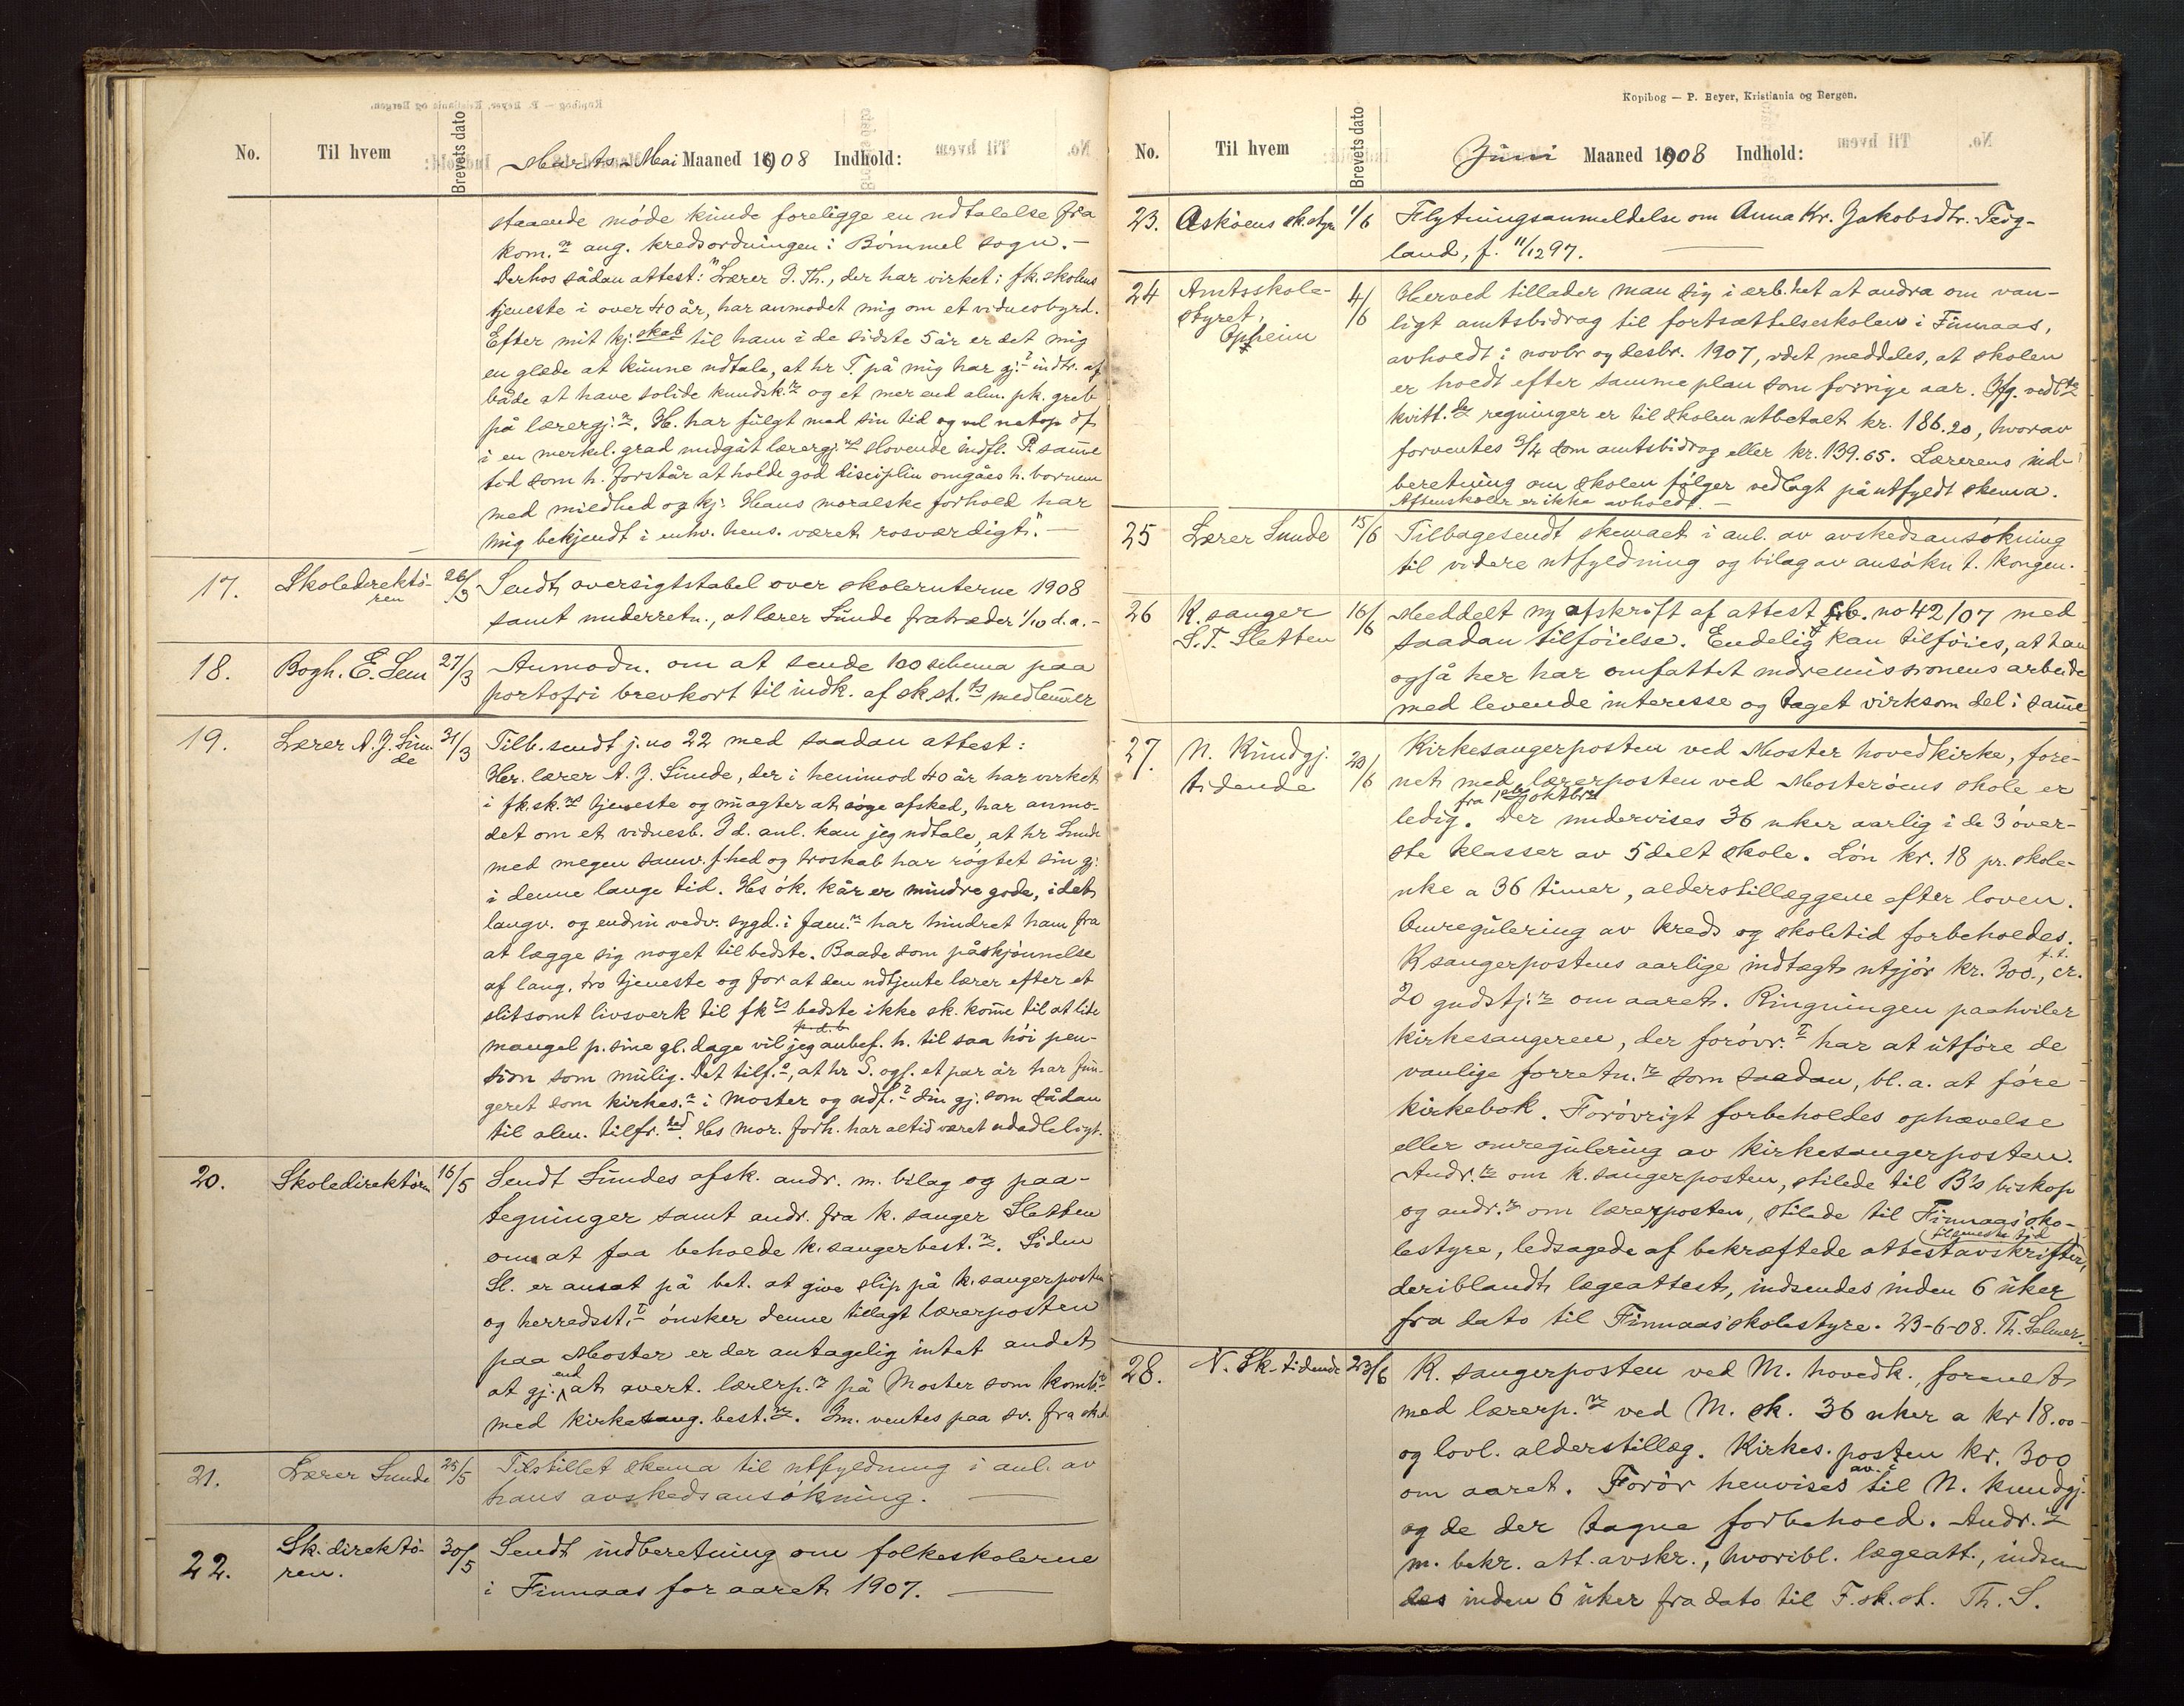 No. Til hvem Brevets dato Marts-Mai Maaned 1908 Indhold:
staaende møde kunde foreligge en udtalelse fra
kom.n ang. kredsordningen i Bømmel sogn. –
Derhos sådan attest: "Lærer J. Th., der har virket i fk. skolens
tjeneste i over 40 år, har anmodet mig om et vidnesbyrd.
Efter mit kj.skab til ham i de sidste 5 år er det mig
en glæde at kunne udtale, at hr T. på mig har gj.t indtr. af
både at have solide kundsk.r og et mer end alm. pk. greb
på lærergj.n. H. har fulgt med sin tid og vel netop df
i en merkel. grad undgåt lærergj.ns sløvende indfl. P. samme
tid som h. forstår at holde god disciplin omgåes h. børnene
med mildhed og kj. Hans moralske forhold har
mig bekjendt i enhv. hens. været rosværdigt." –
17. Skoledirektøren 26/3 Sendt oversigtstabel over skoleruterne 1908
samt underretn., at lærer Sunde fratræder 1/10 d.a. –
18. Bogh. E. Sem 27/3 Anmodn. om at sende 100 schema paa
portofri brevkort til indk. af sk.st.ts medlemmer
19. Lærer A. J. Sunde 31/3 Tilb.sendt j.no 22 med saadan attest:
Hr. lærer A. J. Sunde, der i henimod 40 år har virket
i fk.sk.ns tjeneste og nu agter at søge afsked, har anmo-
det om et vidnesb. I d. anl. kan jeg udtale, at hr Sunde
med megen samv.f.hed og troskab har røgtet sin gj.
i denne lange tid. Hs øk. kår er mindre gode, idet
langv. og endnu vedv. sygd. i fam.n har hindret ham fra
at lægge sig noget til bedste. Baade som påskjønnelse
af lang, tro tjeneste og for at den udtjente lærer efter et
slitsomt livsverk til fk.ts bedste ikke sk. komme til at lide
mangel p. sine gl. dage vil jeg anbef. h. til saa høi pen-
sion som mulig. Det tilf.s, at hr S. ogs. et par år har fun-
geret som kirkes.r i Moster og udf.t sin gj. som sådan
til alm. tilfr.hed. Hs mor. forh. har altid været udadleligt.
20. Skoledirektøren 16/5 Sendt Sundes afsk. andr. m. bilag og paa-
tegninger samt andr. fra k. sanger Sletten
om at faa beholde k. sangerbest.n. Siden
Sl. er ansat på bet. at give slip på k. sangerposten
og herredsst.t ønsker denne tillagt lærerposten
paa Moster er der antagelig intet andet
at gj. end at avert. lærerp.n på Moster som komb.t
med kirkesang. best.n. Im. ventes paa sv. fra sk.d
21. Lærer Sunde 25/5 Tilstillet skema til utfyldning i anl. av
hans avskedsansøkning. –
22. Sk. direktøren. 30/5 Sendt indberetning om folkeskolerne
i Finnaas for aaret 1907. –
Kopibog — P. Beyer, Kristiania og Bergen.
No. Til hvem Brevets dato Juni Maaned 1908 Indhold:
23. Askøens sk.styre 1/6 Flytningsanmeldelse om Anna Kr. Jakobsdtr. Teig-
land, f. 11/12 97. –
24 Amtsskolestyret, Opheim 4/6 Herved tillader man sig i ærb.het at andra om van-
ligt amtsbidrag til fortsættelseskolen i Finnaas,
avholdt i novbr og desbr. 1907, idet meddeles, at skolen
er holdt efter samme plan som forrige aar. Ifg. vedl.te
kvitt.te regninger er til skolen utbetalt kr. 186.20, hvorav
forventes 3/4 som amtsbidrag eller kr. 139.65. Lærerens ind-
beretning om skolen følger vedlagt på utfyldt skema.
Aftenskoler er ikke avholdt. –
25 Lærer Sunde 15/6 Tilbagesendt skemaet i anl. av avskedsansøkning
til videre utfyldning og bilag av ansøkn t. Kongen.
26 K. sanger S. T. Sletten 16/6 Meddelt ny afskrift af attest no 42/07 med
saadan tilføielse. Endelig kan tilføies, at han
også her har omfattet indremissionens arbeide
med levende interesse og taget virksom del i samme
27. N. Kundgj.tidende 23/6 Kirkesangerposten ved Moster hovedkirke, fore-
net med lærerposten ved Mosterøens skole er
fra 1ste oktbr
ledig. Der undervises 36 uker aarlig i de 3 øver-
ste klasser av 5 delt skole. Løn kr. 18 pr. skole-
uke a 36 timer, alderstillæggene efter loven.
Omregulering av kreds og skoletid forbeholdes.
K sangerpostens aarlige indtægt utgjør kr. 300., cr.
20 gudstj.r om aaret. Ringningen paahviler
kirkesangeren, der forøvr.t har at utføre de
vanlige forretn.r som saadan, bl. a. at føre
kirkebok. Forøvrigt forbeholdes ophævelse
eller omregulering av kirkesangerposten.
Andr.r om k. sangerposten, stilede til B's biskop
og andr.r om lærerposten, stilede til Finnaas sko-
lestyre, ledsagede af bekræftede attestavskrifter,
deriblandt lægeattest, indsendes inden 6 uker
fra dato til Finnaas skolestyre. 23-6-08. Th. Selmer.
28. N. Sk.tidende 23/6 K. sangerposten ved M. hovedk., forenet
med lærerp.n ved M. sk. 36 uker a kr 18.00
og lovl. alderstillæg. Kirkes. posten kr. 300
om aaret. Forøv henvises til N. kundgj.
og de der tagne forbehold. Andr.r
m. bekr. att. avskr., hvoribl. lægeatt., indsen
des inden 6 uker fra dato til F. sk. st. Th. S.